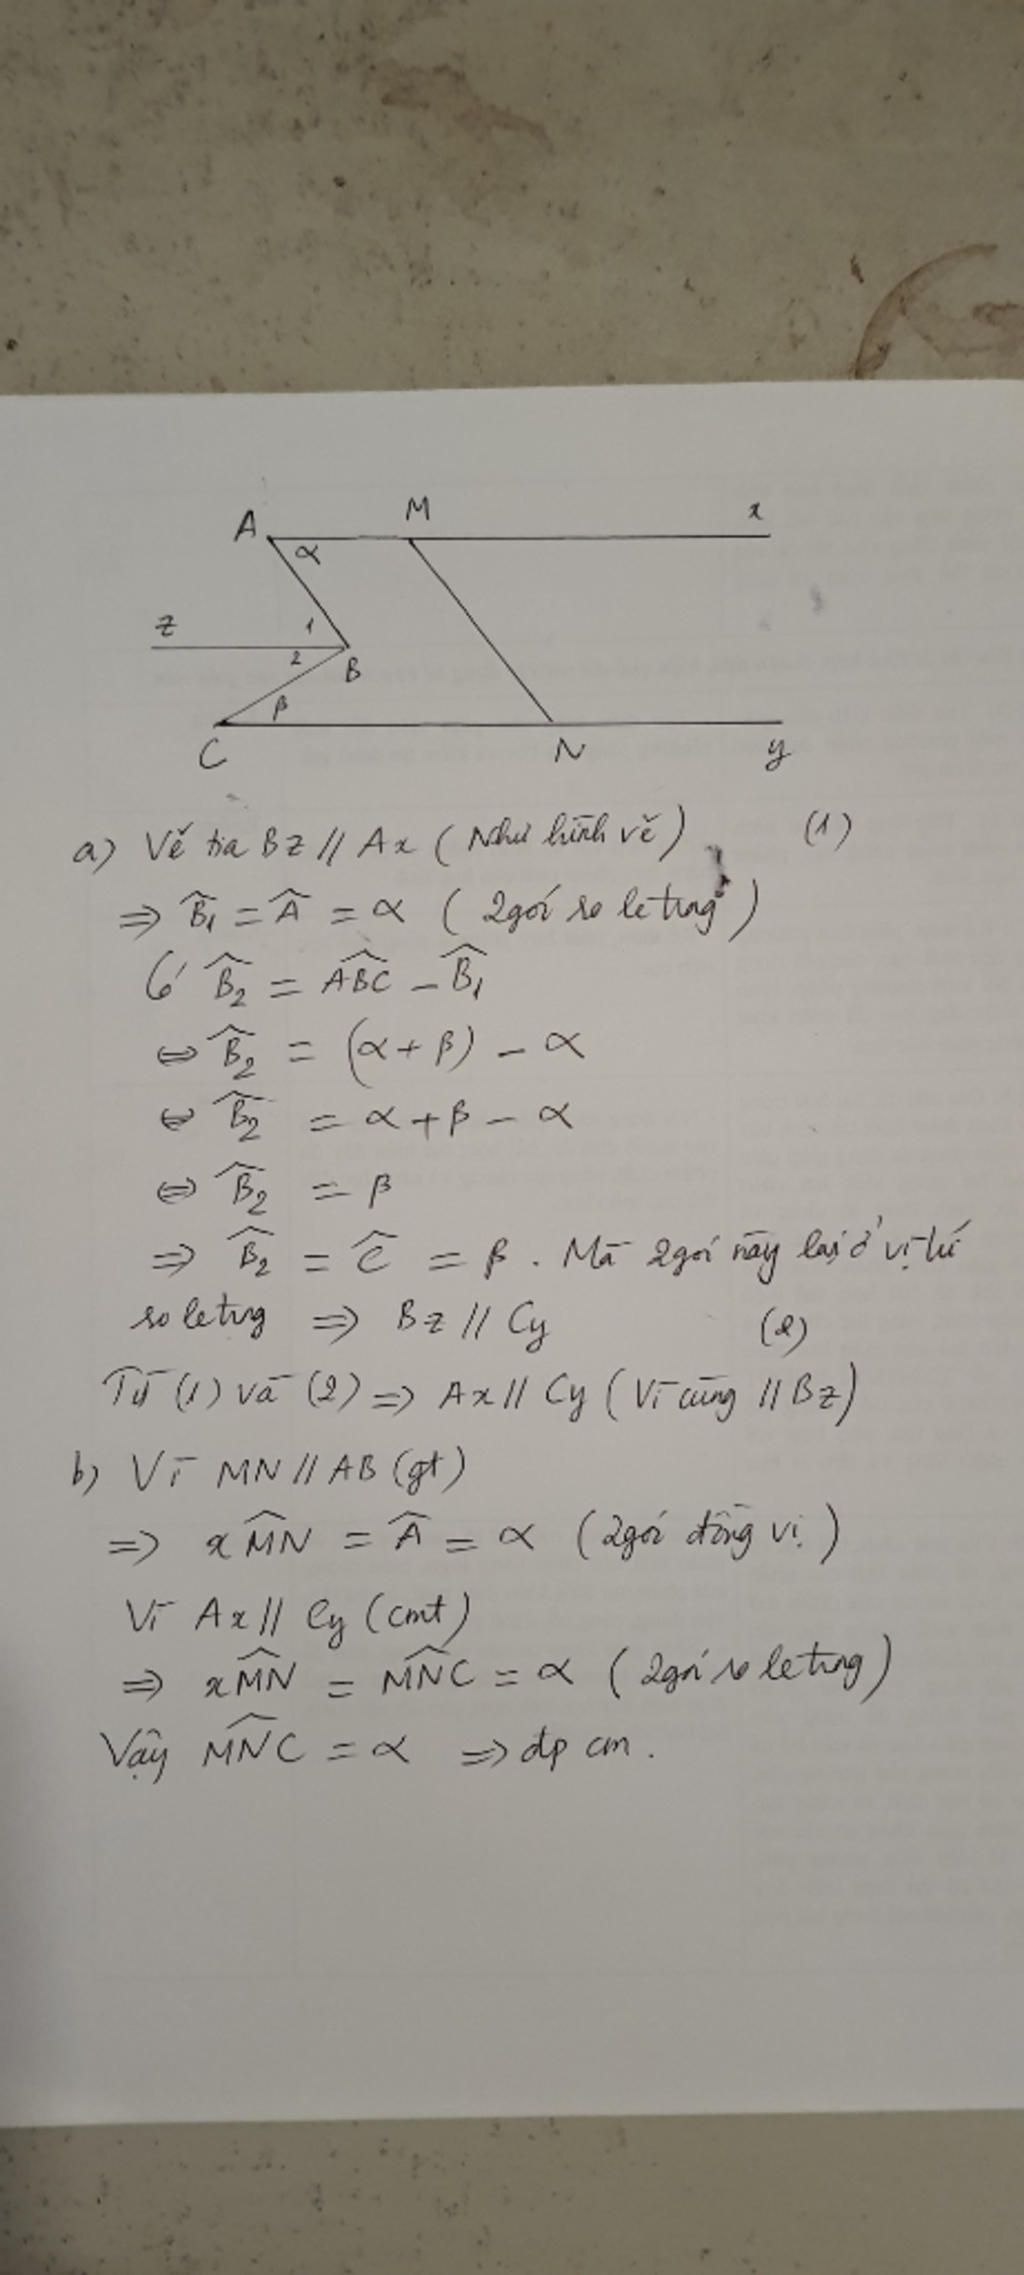 A M x
α
z 1
2 B
β
C N y
a) Vẽ tia Bz // Ax (Như hình vẽ) (1)
⇒ B̂₁ = Â = α (2 góc so le trong)
Có B̂₂ = ABC̑ - B̂₁
⇔ B̂₂ = (α + β) - α
⇔ B̂₂ = α + β - α
⇔ B̂₂ = β
⇒ B̂₂ = Ĉ = β. Mà 2 góc này lại ở vị trí
so le trong ⇒ Bz // Cy (2)
Từ (1) và (2) ⇒ Ax // Cy (Vì cùng // Bz)
b) Vì MN // AB (gt)
⇒ xM̂N = Â = α (2 góc đồng vị)
Vì Ax // Cy (cmt)
⇒ xM̂N = MN̂C = α (2 góc so le trong)
Vậy MN̂C = α ⇒ đpcm.